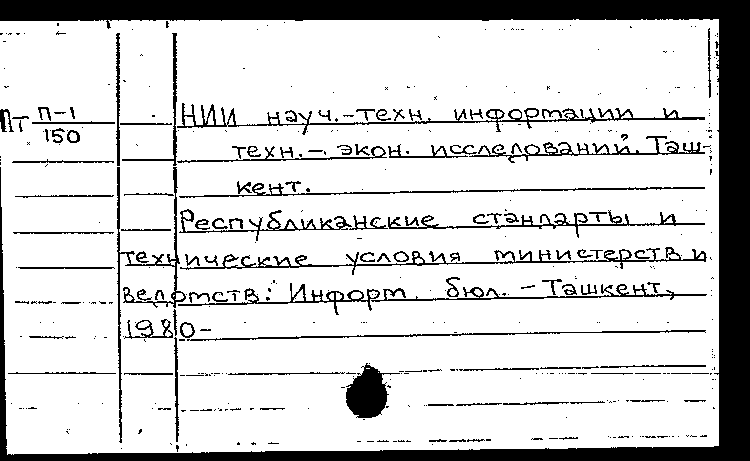 Пт П-1
150
НИИ науч.-техн. информации и
техн.-экон. исследований. Таш-
кент.
Республиканские стандарты и
технические условия министерств и
ведомств: Информ. бюл. - Ташкент,
1980-